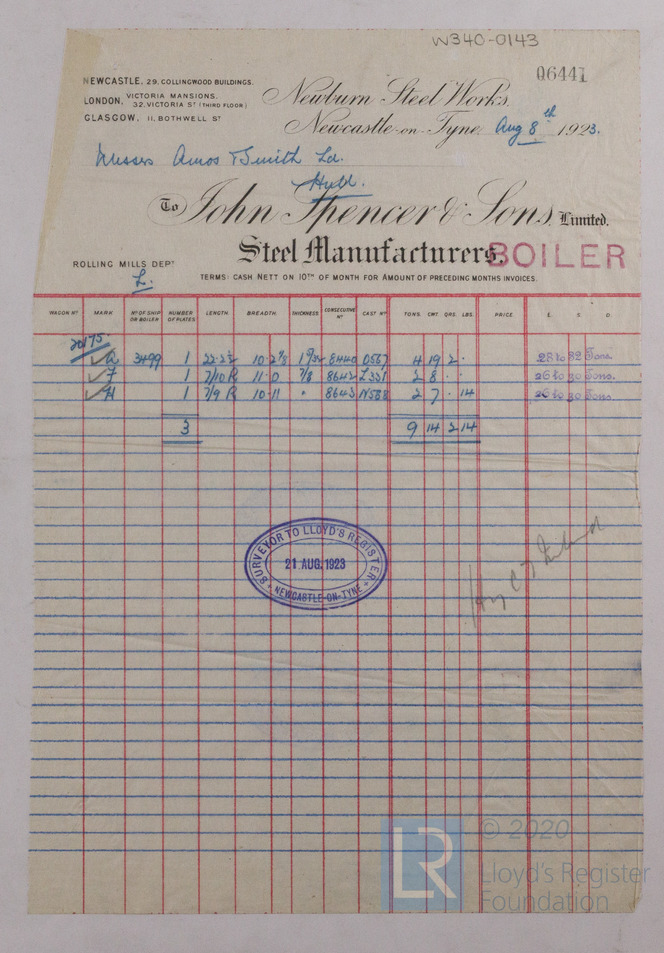 W340-0143
NEWCASTLE. 29. COLLINGWOOD BUILDINGS.
06441
LONDON, VICTORIA MANSIONS. 32. VICTORIA ST (THIRD FLOOR)
GLASGOW, 11, BOTHWELL ST
Newburn Steel Works,
Newcastle-on-Tyne, Aug 8th 1923.
Messrs Amos & Smith Ld.
Hull.
To John Spencer & Sons, Limited.
Steel Manufacturers.
BOILER
ROLLING MILLS DEPT
L.
TERMS: CASH NETT ON 10TH OF MONTH FOR AMOUNT OF PRECEDING MONTHS INVOICES.
WAGON NO MARK NO OF SHIP OR BOILER NUMBER OF PLATES LENGTH. BREADTH. THICKNESS CONSECUTIVE NO CAST NO TONS. CWT. QRS. LBS. PRICE £. S. D.
20175
3499 1 22-2½ 10-2⅞ 8440 0567 4 19 2 - 28 to 32 Tons.
F 1 7/10 R 11-0 7/8 8642 L351 2 8 - - 26 to 30 Tons.
H 1 7/9 R 10-11 " 8643 N588 2 7 - 14 26 to 30 Tons.
3 9 14 2 14
SURVEYOR TO LLOYD'S REGISTER
21 AUG. 1923
NEWCASTLE-ON-TYNE
LR
© 2020
Lloyd's Register
Foundation